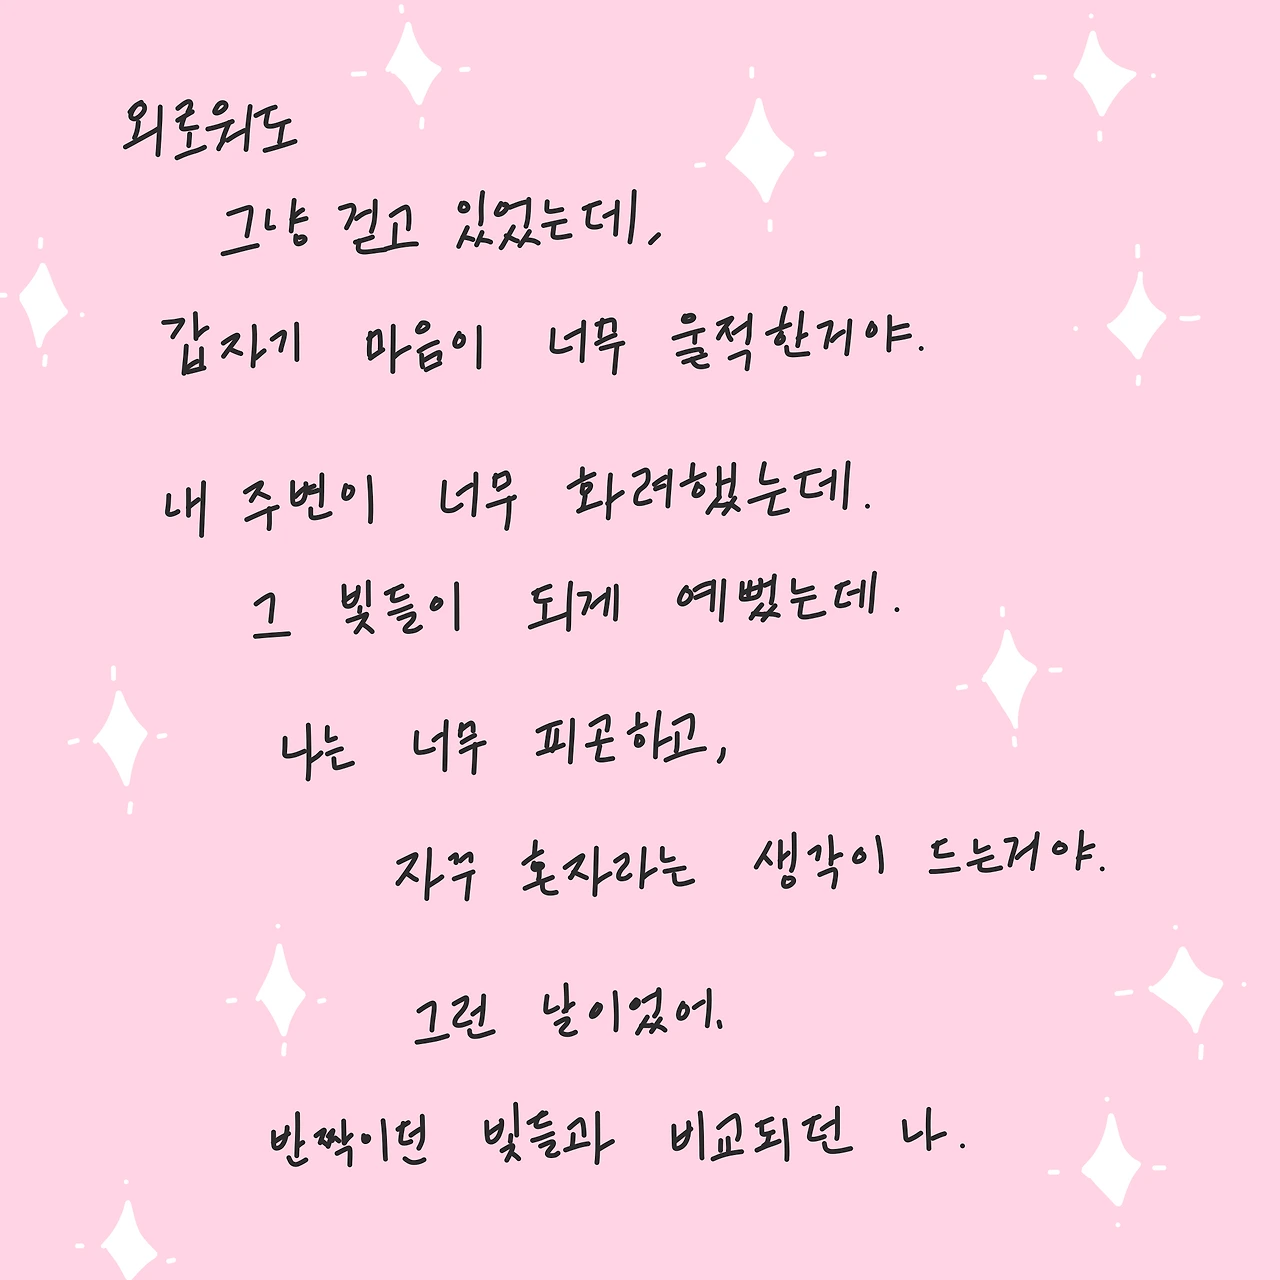 외로워도
그냥 걷고 있었는데,
갑자기 마음이 너무 울적한거야.
내 주변이 너무 화려했는데.
그 빛들이 되게 예뻤는데.
나는 너무 피곤하고,
자꾸 혼자라는 생각이 드는거야.
그런 날이었어.
반짝이던 빛들과 비교되던 나.